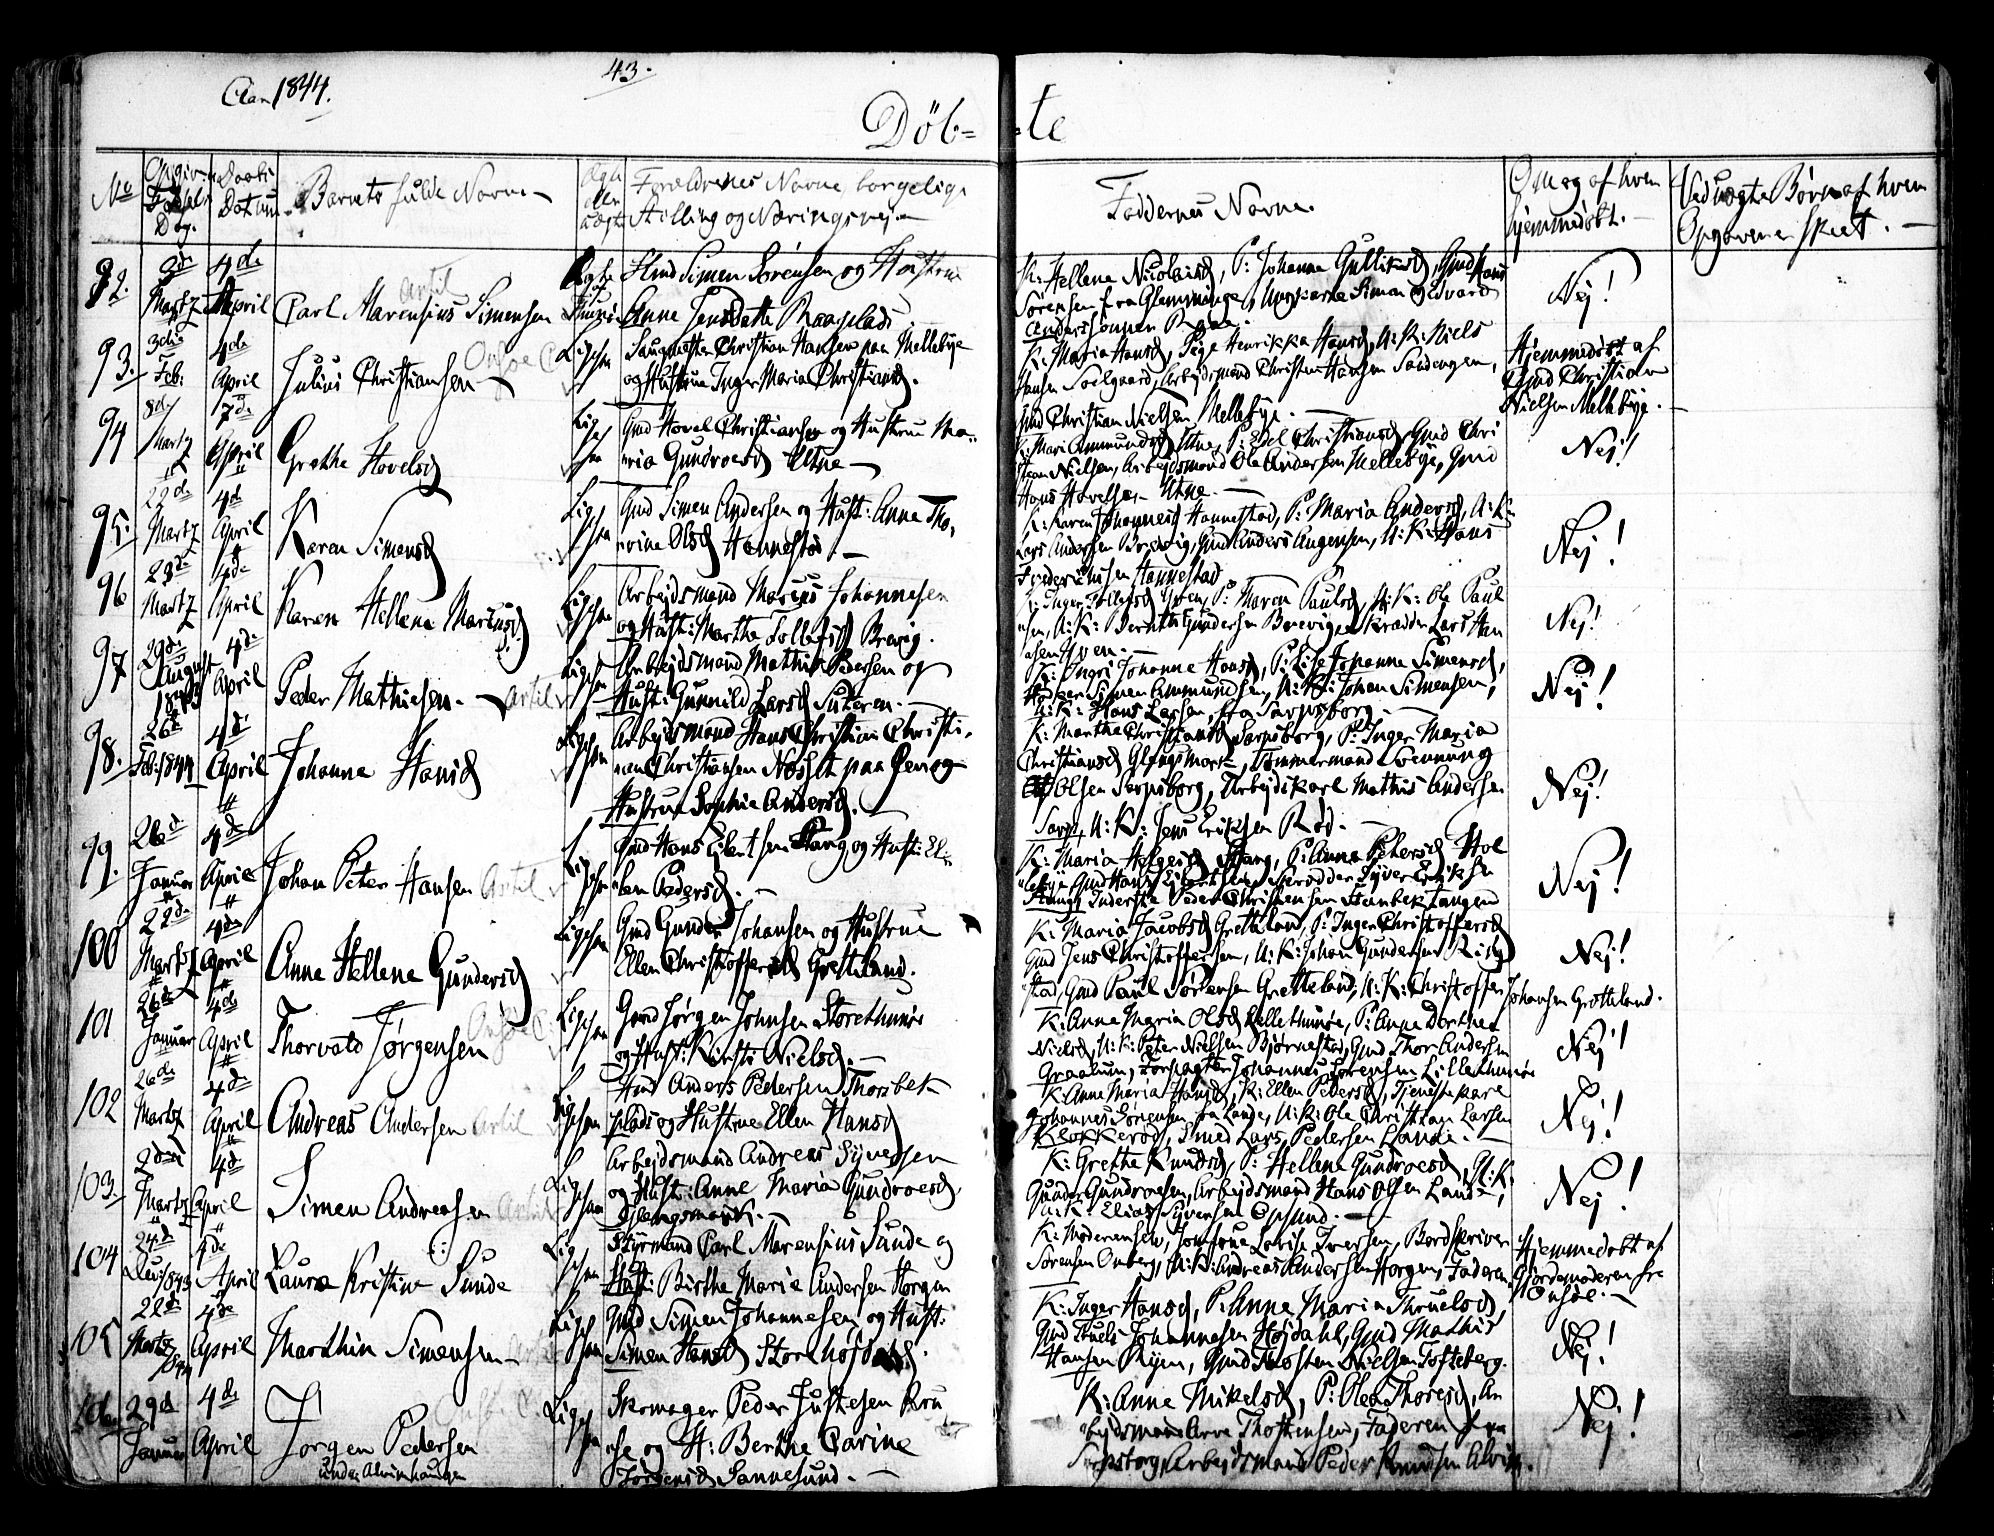 Aar 1844.
43.
Döb= =te
No
Opgiv.
Fødsels
Dag.
Daabs
Datum
Barnets fulde Navne
Ægte
eller
uægte
Forældrenes Navne, borgelige
Stilling og Næringsvei.
Faddernes Navne.
Om og af hvem
hjemmedøbt.
Ved uægte Børn af hvem
Opgaven er skeet.
92.
Martz
4de
April
Carl Marensius Simensen
Artil
Simen Sørensen og Hustrue
Anne
K: Hellene P: Johanne Gulliksd, Gmd Hans
Sørensen fra Glemminge, Simon og Edvard
Nej!
93.
3die
Feb:
4de
April
Julius Christiansen
Onsøe
Ligesaa
Christian Hansen paa Mellebye
og Hustrue Inger Maria Christiansd.
K: Maria Hansd, Pige Henrikka Hansd, U: K: Niels
Hansen Soelgaard, Arbeidsmand Christen Hansen Sandengen,
Gmd Christian Nielsen Mellebye.
Hjemmedøbt af
Gmd Christian
Nielsen Mellebye.
94
8de
Martz
7de
April
Grethe Hovelsd
Ligesaa
Gmd Hovel Christiansen og Hustrue Ma=
ria Gundroesd Utne
K: Mari Ammundsd Utne, P: Edel Christiansd, Gmd Chri
stian Nielsen, Arbeidsmand Ole Andersen Mellebye, Gmd
Hans Hovelsen Utne.
Nej!
95.
22de
Martz
4de
April
Karen Simensd
Ligesaa
Gmd Simen Andersen og Hust: Anne Tho=
rine Olsd Hannestad.
K: Karen Johannesd Hannestad, P: Maria Andersd, U: K:
Lars Andersen Brevig, Gmd Anders Augensen, U: K: Hans
Frederiksen Hannestad
Nej!
96
23de
Martz
4de
April
Karen Hellene Mariusd
Ligesaa
Arbejdsmand Marius Johannesen
og Hust: Marthe Tollefsd Brevig.
K: Inger P: Maren Paulsd, U: K: Ole Paul
sen, U: K: Gundersen Brevig, Skrædder Lars Han
sen
Nej!
97
29de
August
1843
4de
April
Peder Mathiesen.
Artil
Ligesaa
Arbejdsmand Mathis Pedersen og
Hust: Gunnild Larsd
K: Ingri Johanne Hansd, P: Lise Johanne Simensd,
Simen Ammundsen, U: K: Johan Simensen,
U: K: Hans Larsen, fra Sarpsborg.
Nej!
98.
26de
Feb: 1844
4de
April
Johanne Hansd
Ligesaa
Arbejdsmand Hans Christian Christi=
an Christiansen Næsset paa og
Hustrue Sophie Andersd.
K: Marthe Christiansd Sarpsborg, P: Inger Maria
Christiansd Glengsmark, Tømmermand
Olsen Sarpsborg, Arbejdskarl Mathis Andersen
Sarp, U: K: Jens Eriksen Rød.
Nej!
99.
26de
Januar
4de
April
Johan Peter Hansen
Artil
Ligesaa
Gmd Hans Eilertsen Stang og Hust: El=
len Pedersd.
K: Maria Helgesd Stang, P: Anne Petersd
Gmd Hans Eilertsen Skrædder Syver Eriksen
Stang, Inderste Peder Christensen
Nej!
100
22de
Martz
4de
April
Anne Hellene Gundersd
Ligesaa
Gmd Gunder Johansen og Hustrue
Ellen Christoffersd Gretteland.
K: Maria Jacobsd Gretteland, P: Inger Christoffersd
Gmd Jens Christoffersen, U: K: Johan Gundersen
stad, Gmd Paul Sørensen Gretteland, U: K: Christoffer Johansen Gretteland.
Nej!
101
26de
Januar
4de
April
Thorvald Jørgensen
Onsøe
Ligesaa
Gmd Jørgen Johnsen Storethunøe
og Hust: Kirsti Nielsd.
K: Anne Maria Olsd Lillethunøe, P: Anne Dorthea
Nielsd, U: K: Peter Nielsen Bjørnestad, Gmd Thor Andersen
Graalum, Forpagter Johannes Sørensen Lillethunøe
Nej!
102
26de
Martz
4de
April
Andreas Andersen
Artil
Ligesaa
Anders Pedersen Thorsbek
plads og Hustrue Ellen Hansd
K: Anne Maria Hansd, K: Ellen Pedersd, Tjenestekarl
Johannes Sørensen fra Lande, U: K: Ole Christian Larsen
Klokkerød, Smed Lars Pedersen Lande.
Nej!
103
Martz
4de
April
Simen Andreasen
Artil
Ligesaa
Arbejdsmand Andreas Syversen
og Hust: Anne Maria Gundroesd,
Glengsmark.
K: Grethe Knudsd, P: Hellene Gundroesd, U: K:
Gunder Gundroesen, Arbejdsmand Hans Olsen Lande,
U: K: Elias Syversen Opsund.
Nej!
104
24de
1843
4de
April
Laura Kristine Sunde
Ligesaa
Styrmand Carl Marensius Sunde og
Hust: Birthe Marie Andersen Horgen
K: Moderen selv, Jomfrue Lovise Iversen, Bordskriver
Sørensen Onberg, U: K: Andreas Andersen Horgen, Faderen.
Hjemmedøbt af
Gjordemoderen fra
Onsøe.
105
22de
Martz
1844
4de
April
Marthin Simensen
Ligesaa
Gmd Simen Johannesen og Hust:
Simen Hansd Storehøjdahl.
K: Inger Hansd, P: Anne Maria Thruelsd,
Gmd Truels Johannesen Højdahl, Gmd Mathis
Hansen Ryen, Gmd Thosten Nielsen Tofteberg.
Nej!
106
29de
Januar
4de
April
Jørgen Pedersen
under Alvimhaugen
Onsøe
Ligesaa
Skomager Peder Justesen Kru
se og H: Berthe Carine
Jørgensd Sannesund.
K: Anne Mikelsd, P: Olea Thoresd, Ar
bejdsmand Arve Thostensen, Faderen fra
Sarpsborg, Arbejdsmand Peder Knudsen Alvim.
Nej!